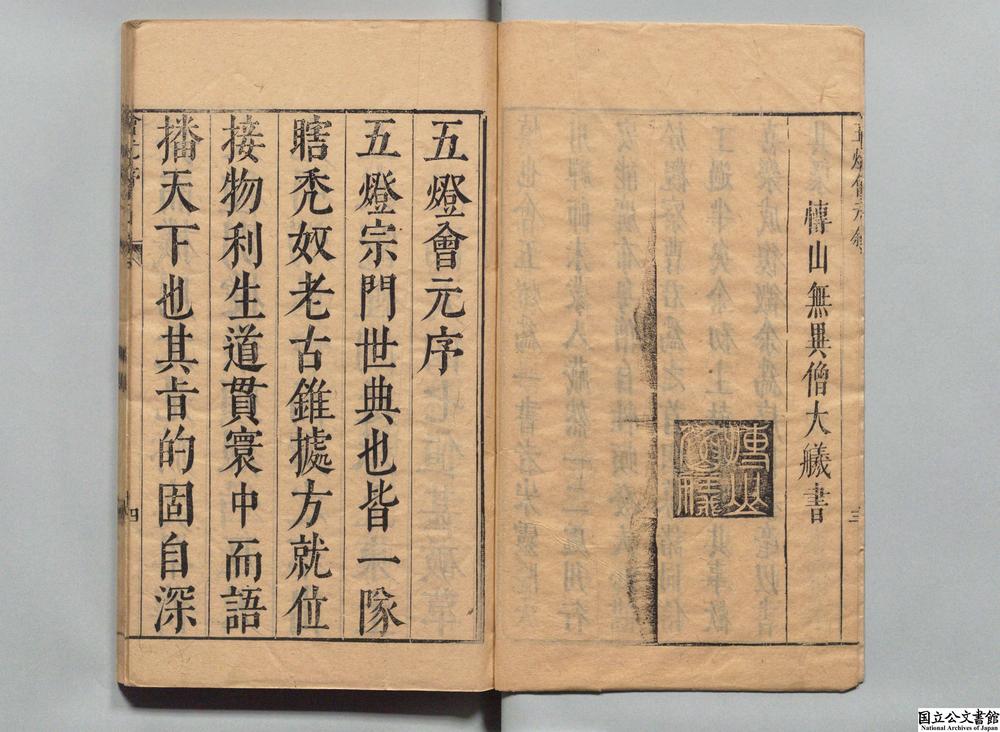 五燈會元
三
博山無異僧大艤書
博山
五燈會元序
五燈宗門世典也皆一隊
瞎禿奴老古錐據方就位
接物利生道貫寰中而語
播天下也其旨的固自深
四
国立公文書館
National Archives of Japan